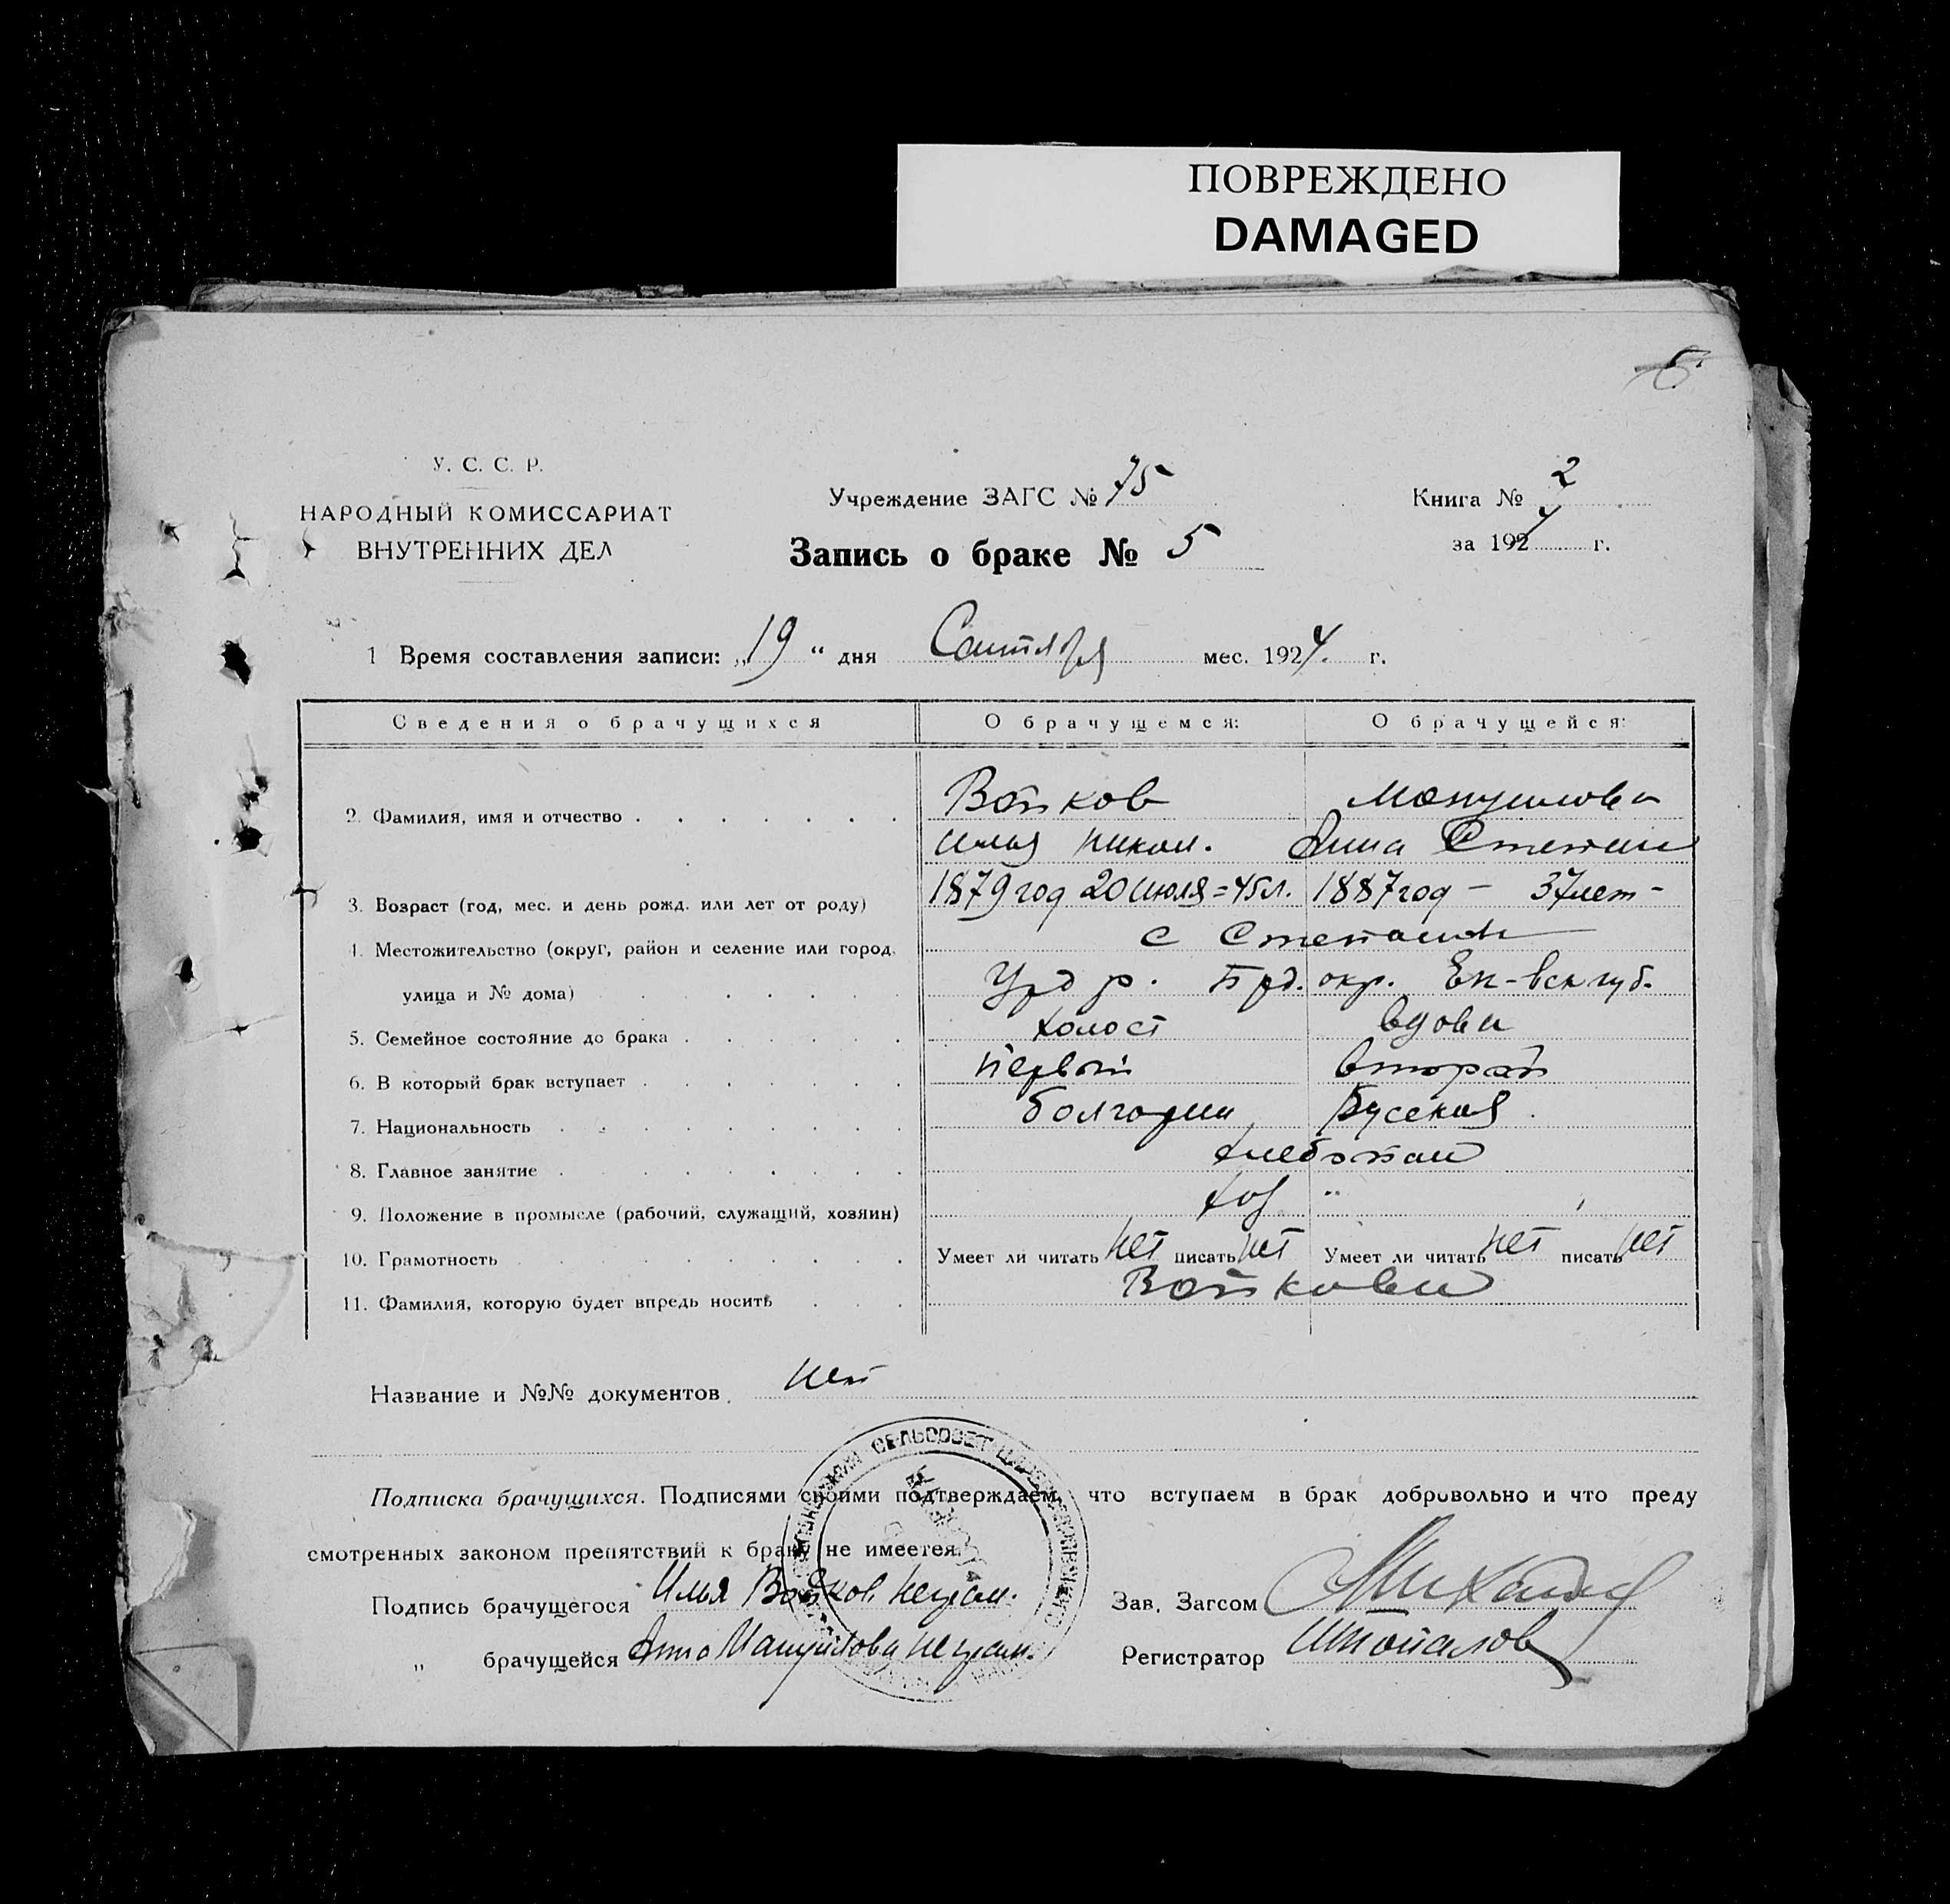 ПОВРЕЖДЕНО
DAMAGED
У. С. С. Р.
НАРОДНЫЙ КОМИССАРИАТ
ВНУТРЕННИХ ДЕЛ
Учреждение ЗАГС № 75
Запись о браке № 5
Книга № 2
за 1924 г.
1 Время составления записи: „19“ дня Сентября мес. 1924. г.
Сведения о брачущихся О брачущемся: О брачущейся:
2. Фамилия, имя и отчество Войков Манушлова
Илья Никол. Анна Степан
3. Возраст (год, мес. и день рожд. или лет от роду) 1879 год 20 июля = 45 л. 1887 год – 37 лет –
4. Местожительство (округ, район и селение или город, с Степан
улица и № дома) р. Брд. окр. Ек-вск губ.
5. Семейное состояние до брака холост вдова
6. В который брак вступает первый второй
7. Национальность болгарин Русская
8. Главное занятие хлебопаш
9. Положение в промысле (рабочий, служащий, хозяин) хоз "
10. Грамотность Умеет ли читать нет писать нет Умеет ли читать нет писать нет
11. Фамилия, которую будет впредь носить Войковы
Название и №№ документов нет
Подписка брачущихся. Подписями своими подтверждаем, что вступаем в брак добровольно и что преду
смотренных законом препятствий к браку не имеется.
Подпись брачущегося Илья Войков неграм.
Зав. Загсом
„ брачущейся Анна неграм.
Регистратор
СЕЛЬСОВЕТ